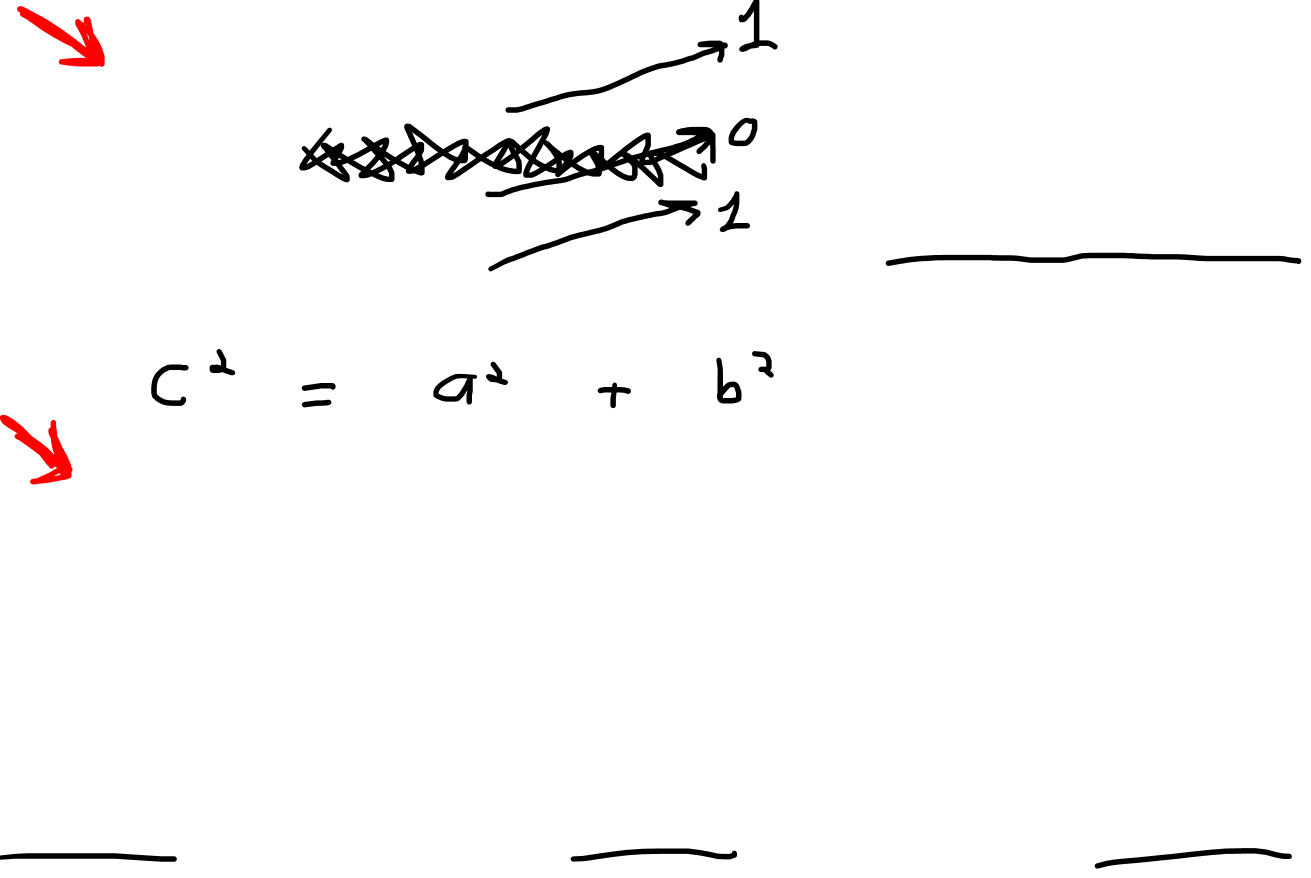 1
0
1
c² = a² + b²